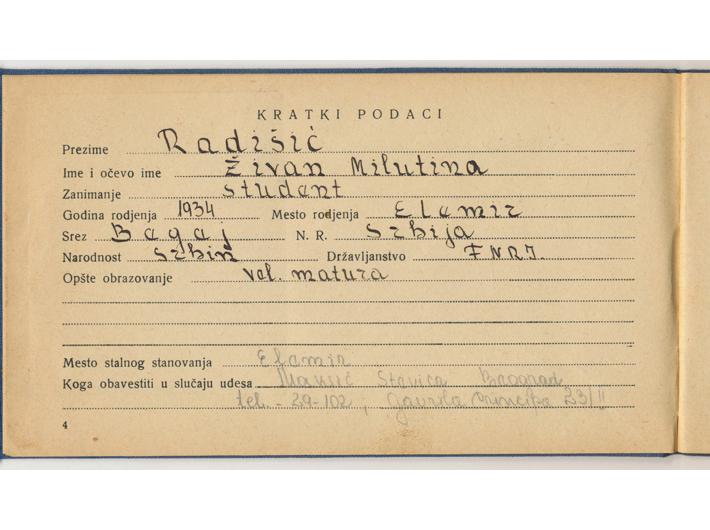 KRATKI PODACI
Prezime Radišić
Ime i očevo ime Živan Milutina
Zanimanje student
Godina rodjenja 1934 Mesto rodjenja Elemir
Srez Begej N. R. Srbija
Narodnost Srbin Državljanstvo FNRJ.
Opšte obrazovanje vel. matura
Mesto stalnog stanovanja Elemir
Koga obavestiti u slučaju udesa Stevica Beograd
tel. - 29-102 ; Gavrila Principa 23/II
4